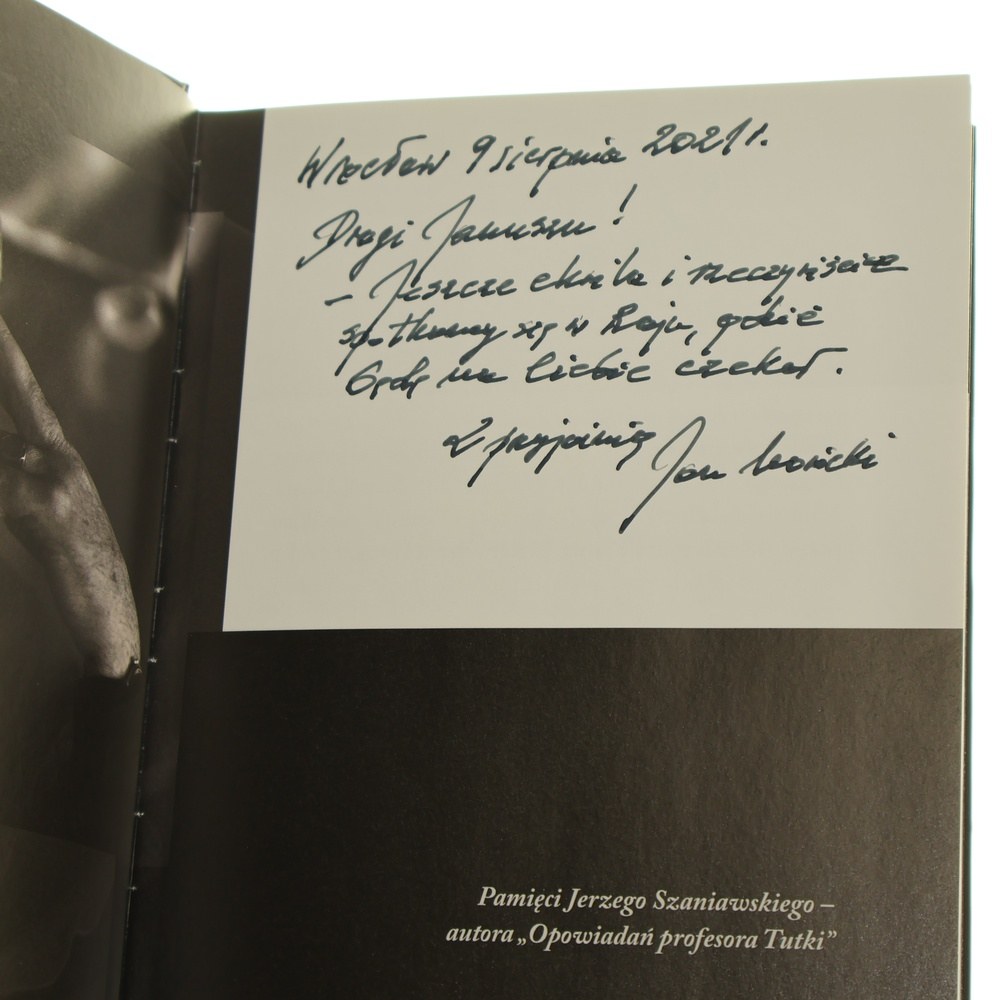 Wrocław 9 sierpnia 2021 r.
Drogi Januszu!
– Jeszcze chwila i rzeczywiście
spotkamy się w Raju, gdzie
będę na Ciebie czekał.
Z przyjaźnią Jan
Pamięci Jerzego Szaniawskiego –
autora „Opowiadań profesora Tutki”